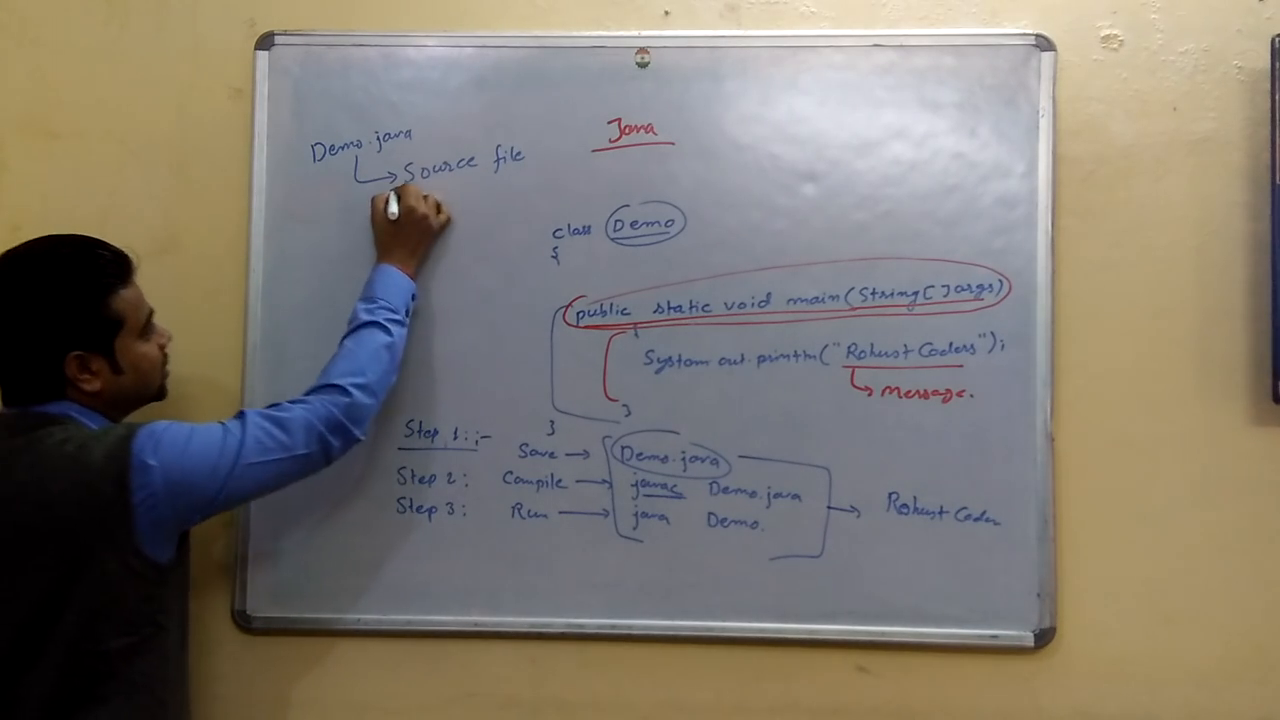 Java
Demo.java
Source file
class Demo
{
public static void main(String[] args)
{
System.out.println("Robust Coders");
message.
}
}
Step 1:;-
Save → Demo.java
Step 2: Compile → javac Demo.java
Step 3: Run → java Demo.
→ Robust Coder